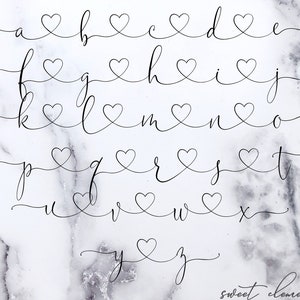 a b c d e
f g h i j
k l m n o
p q r s t
u v w x
y z
sweet